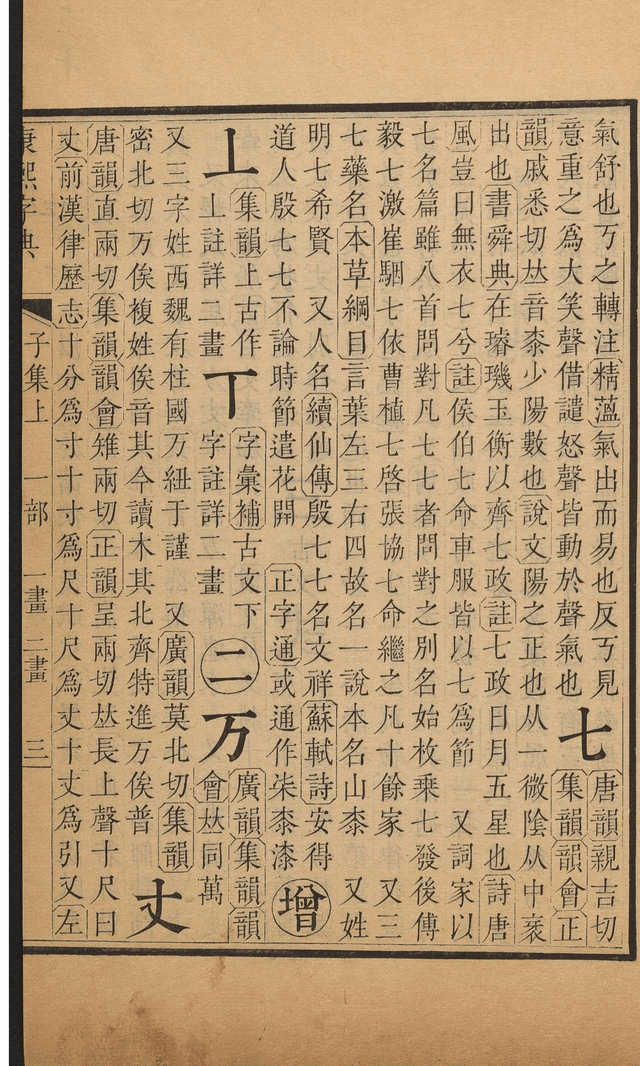 氣舒也丂之轉注精薀氣出而易也反丂見
意重之爲大笑聲借譴怒聲皆動於聲氣也
七
唐韻親吉切
集韻韻會正
韻戚悉切𠀤音桼少陽數也說文陽之正也从一微陰从中衺
出也書舜典在璿璣玉衡以齊七政註七政日月五星也詩唐
風豈曰無衣七兮註侯伯七命車服皆以七爲節 又詞家以
七名篇雖八首問對凡七七者問對之別名始枚乗七發後傅
毅七激崔駰七依曹植七啓張協七命繼之凡十餘家 又三
七藥名本草綱目言葉左三右四故名一說本名山桼 又姓
明七希賢 又人名續仙傳殷七七名文祥蘇軾詩安得
道人殷七七不論時節遣花開 正字通或通作柒桼漆
增
丄
集韻上古作
丄註詳二畫
丅
字彙補古文下
字註詳二畫
二
万
廣韻集韻韻
會𠀤同萬
又三字姓西魏有柱國万紐于謹 又廣韻莫北切集韻
密北切万俟複姓俟音其今讀木其北齊特進万俟普
丈
唐韻直兩切集韻韻會雉兩切正韻呈兩切𠀤長上聲十尺曰
丈前漢律歷志十分爲寸十寸爲尺十尺爲丈十丈爲引又左
康熙字典 子集上 一部 一畫 二畫 三